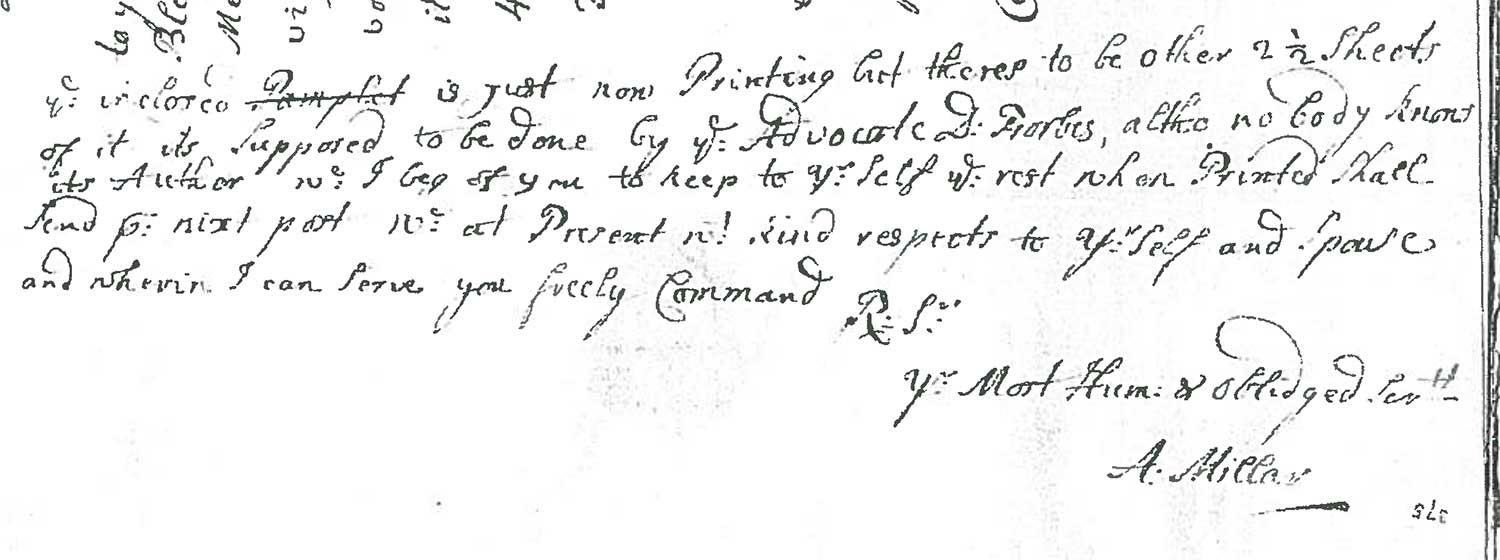 yᵉ: inclosed Pamplet is just now Printing but theres to be other 2 ½ Sheets
of it its Supposed to be done by yᵉ: Advocate D: Forbes, altho no body knows
its Author wᶜ: I beg of you to keep to Yʳ Self yᵉ: rest when Printed Shall
Send p: nixt post wᶜ: at Present wᵗ. Kind respects to Yʳ Self and Spouse
and wherin I can Serve you freely Command
R: Sʳ:
Yʳ Most Hum: & Oblidged Serᵗᵗ
A: Millar
275